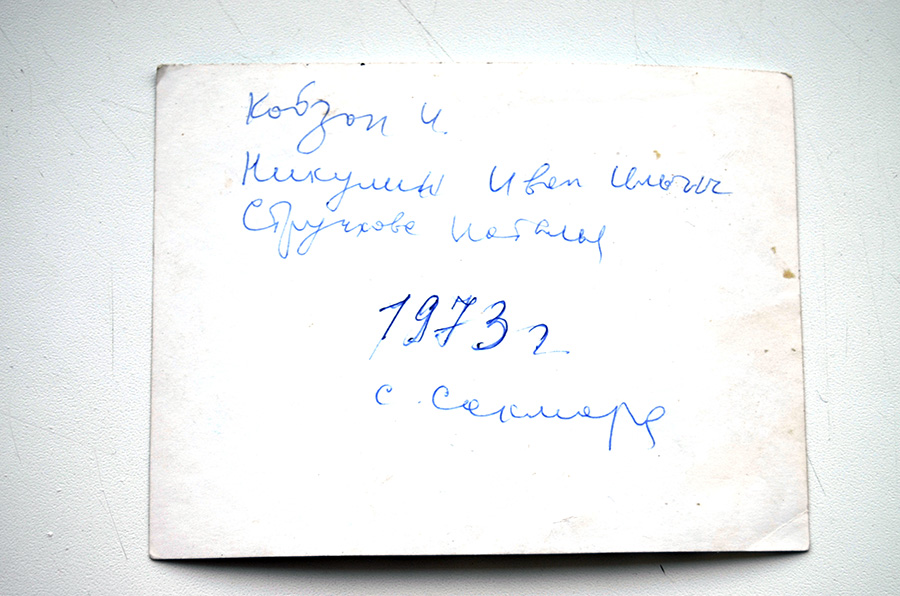 Кобзон И.
Никулин Иван Ильич
Стручкова Наталья
1973 г
с. Сакмара